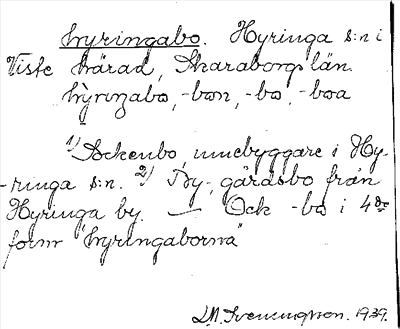 hyringabo. Hyringa s:n i
Viste härad, Skaraborgs län.
hỳriŋabo, -bon, -bo, -boa
1) Sockenbo, innebyggare i Hy-
-ringa s:n. 2) By-, gårdsbo från
Hyringa by. — Ock -bo i 4de
form "hyringaborna"
Svenungsson. 1939.